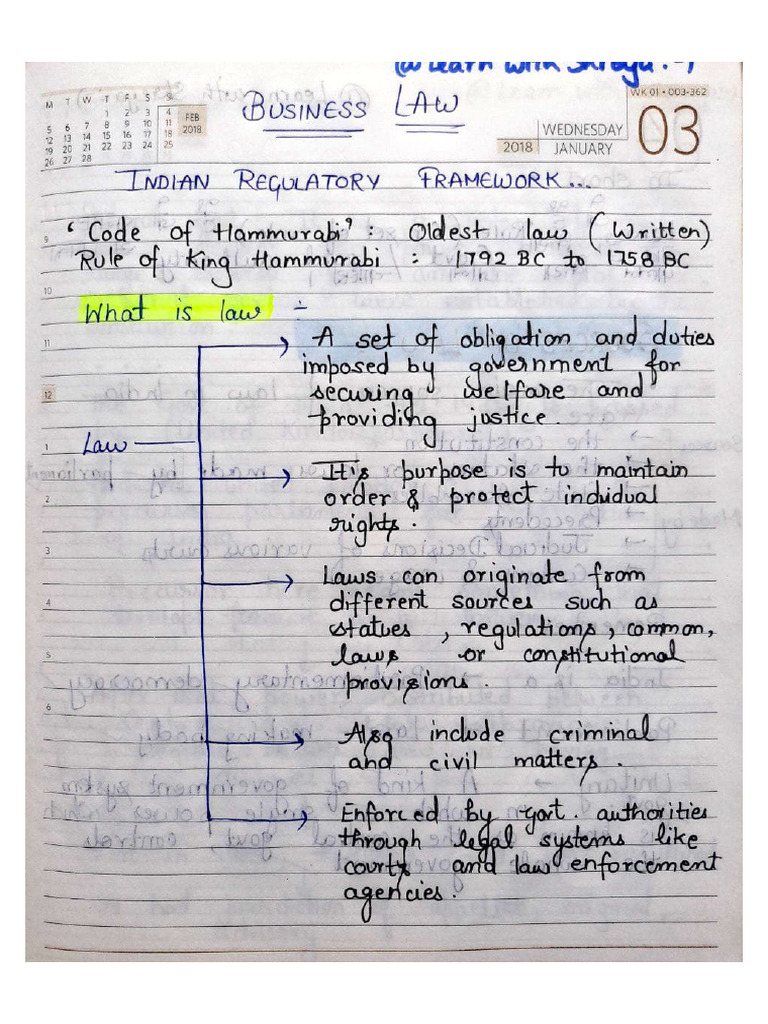 @ Learn with Shreya :-)
M T W T F S S
1 2 3 4
5 6 7 8 9 10 11
12 13 14 15 16 17 18
19 20 21 22 23 24 25
26 27 28
FEB
2018
BUSINESS LAW
WK 01 • 003-362
2018
WEDNESDAY
JANUARY
03
INDIAN REGULATORY FRAMEWORK...
'Code of Hammurabi' : Oldest law (Written)
Rule of King Hammurabi : 1792 BC to 1758 BC
What is law :-
A set of obligation and duties
imposed by government for
securing welfare and
providing justice.
Law
It's purpose is to maintain
order & protect individual
rights.
Laws can originate from
different sources such as
statues, regulations, common,
laws or constitutional
provisions
Also include criminal
and civil matters.
Enforced by govt. authorities
through legal systems like
courts and law enforcement
agencies.
9
10
11
12
1
2
3
4
5
6